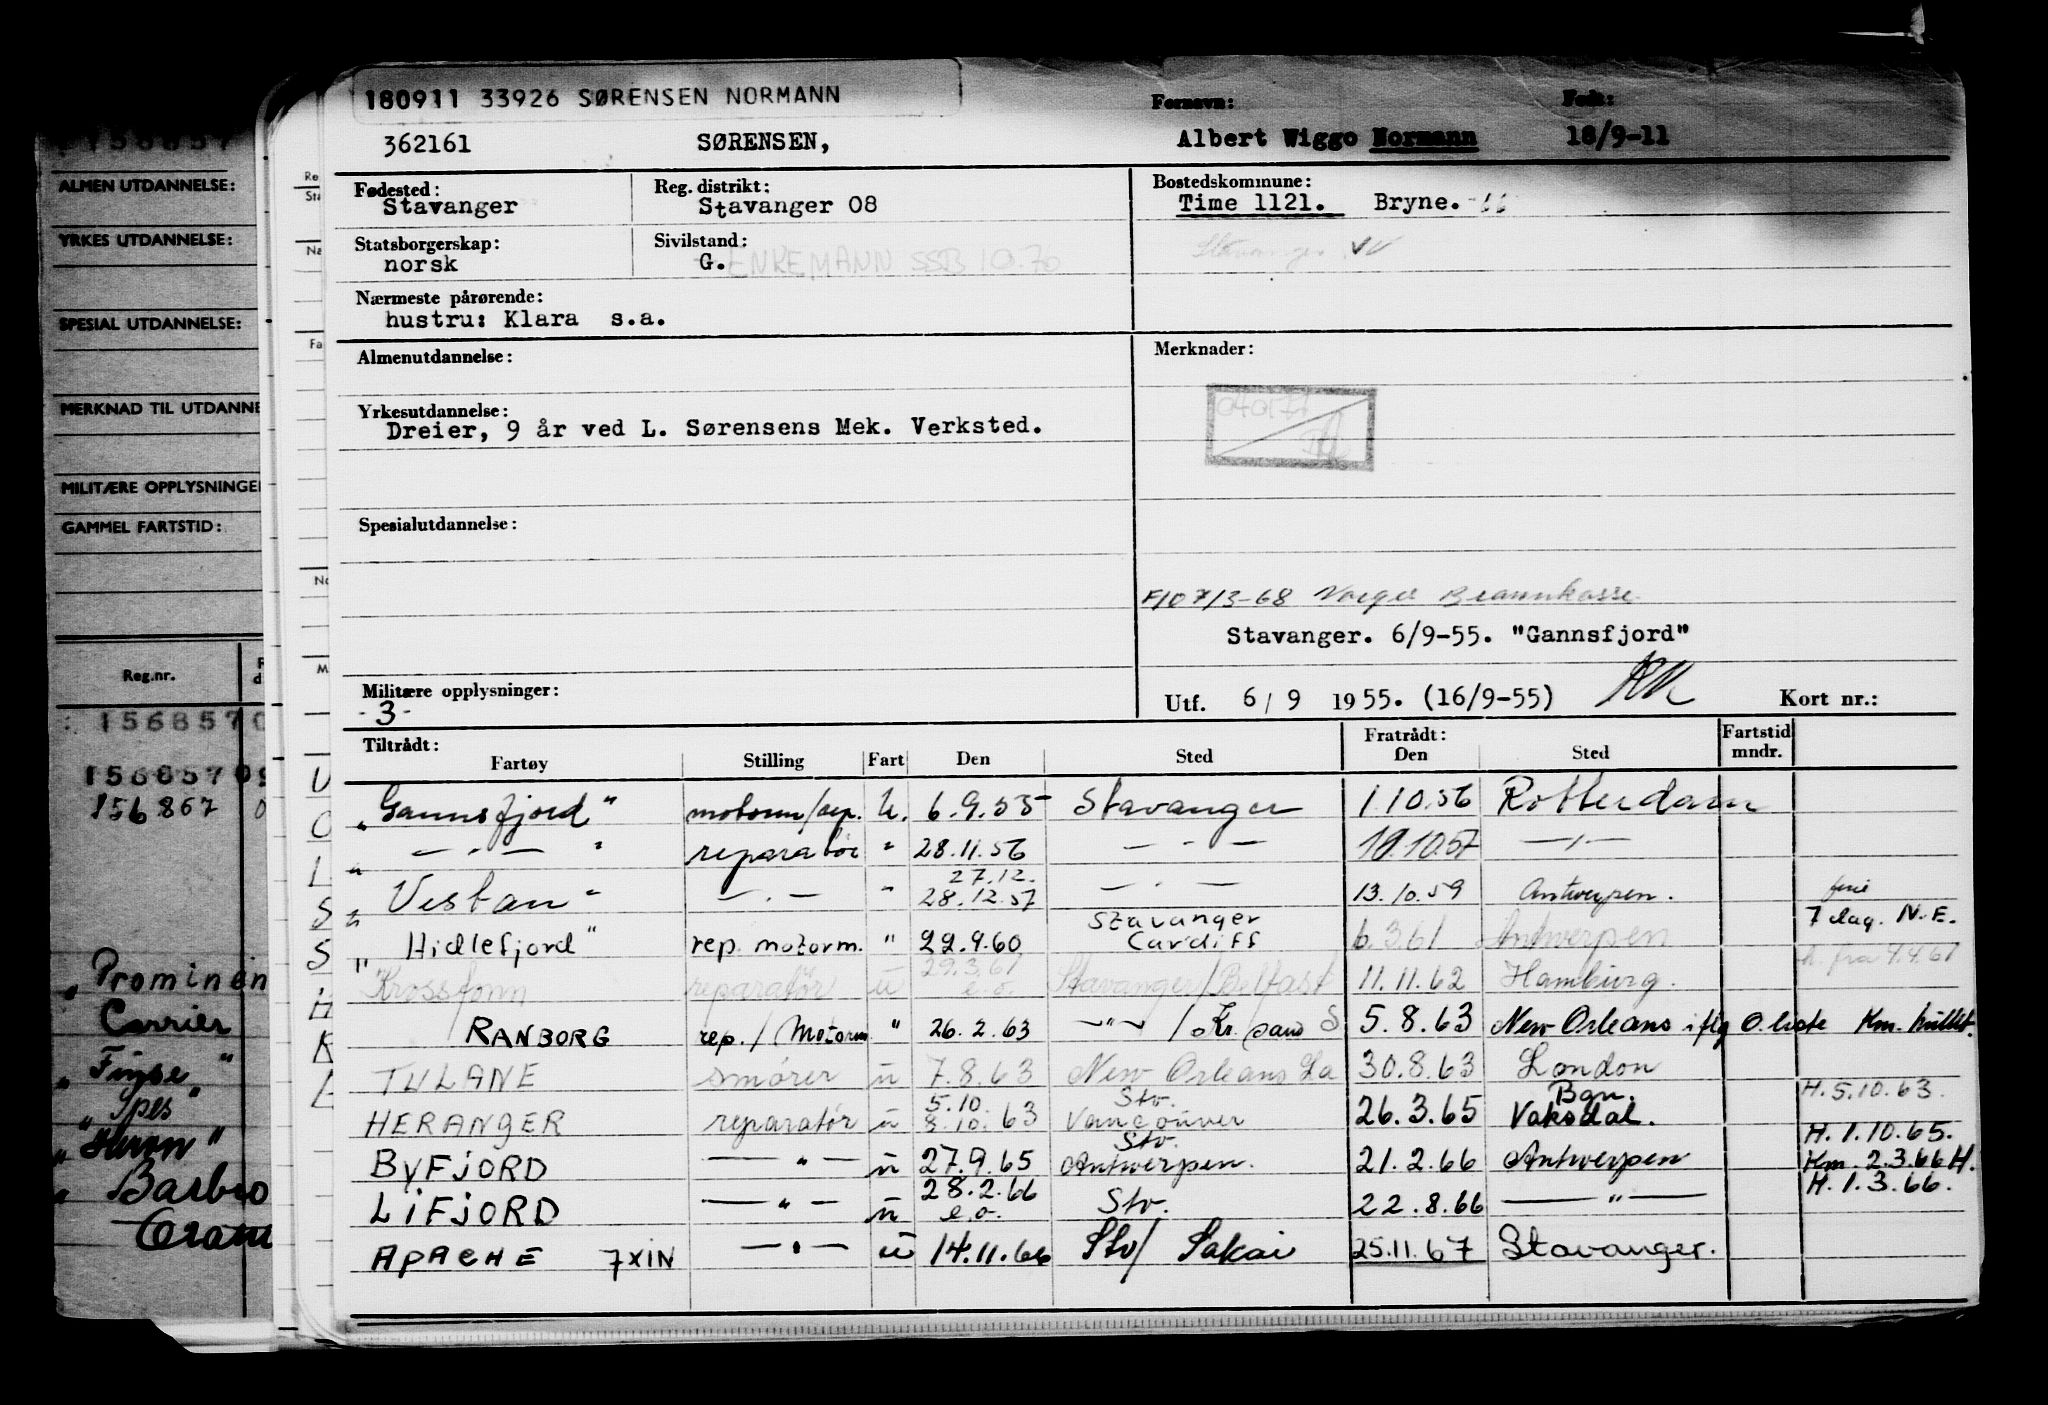 180911 33926 SØRENSEN NORMANN
Fornavn: Født:
362161 SØRENSEN, Albert Wiggo Normann 18/9-11
Fødested: Reg. distrikt: Bostedskommune:
Stavanger Stavanger 08 Time 1121. Bryne. 66
Statsborgerskap: Sivilstand: Stavanger
norsk G. ENKEMANN SSB 10.70
Nærmeste pårørende:
hustru: Klara s.a.
Almenutdannelse: Merknader:
Yrkesutdannelse:
Dreier, 9 år ved L. Sørensens Mek. Verksted.
Spesialutdannelse:
Stavanger. 6/9-55. "Gannsfjord"
Militære opplysninger:
-3-
Utf. 6/9 1955. (16/9-55) Kort nr.:
Tiltrådt: Fratrådt: Fartstid
Fartøy Stilling Fart Den Sted Den Sted mndr.
"Gannsfjord" motorm/rep. U. 6.9.55 Stavanger 1.10.56 Rotterdam
" — " — " reparatør " 28.11.56 — " — 10.10.57 — " —
27.12.
"Vestan" — " — " 28.12.57 — " — 13.10.59 Antwerpen. ferie
7 dag. N.E.
Stavanger
"Hidlefjord" rep. motorm. " 22.9.60 Cardiff 6.3.61 Antwerpen
29.3.61 h. fra 4.4.61
Krossfonn reparatør u e.o. Stavanger/Belfast 11.11.62 Hamburg.
RANBORG rep./Motorm. " 26.2.63 — " — /Kr. sand S 5.8.63 New Orleans iflg O. liste Km. hullet.
TULANE smører u 7.8.63 New Orleans La 30.8.63 London
5.10. Stv. Bgn. H. 5.10.63.
HERANGER reparatør u 8.10.63 Vancouver 26.3.65 Vaksdal.
Stv. H. 1.10.65.
BYFJORD — " — u 27.9.65 Antwerpen. 21.2.66 Antwerpen Km. 2.3.66 H.
28.2.66 H. 1.3.66.
LIFJORD — " — u e.o. Stv. 22.8.66 — " —
APACHE 7XIN — " — u 14.11.66 Stv/ Sakai 25.11.67 Stavanger.
ALMEN UTDANNELSE:
YRKES UTDANNELSE:
SPESIAL UTDANNELSE:
MERKNAD TIL UTDANNE
MILITÆRE OPPLYSNINGE
GAMMEL FARTSTID:
Reg.nr.
1568570
15685709
156867 0
"Prominen
Carrier
"Finse"
"Spes"
"Barbro